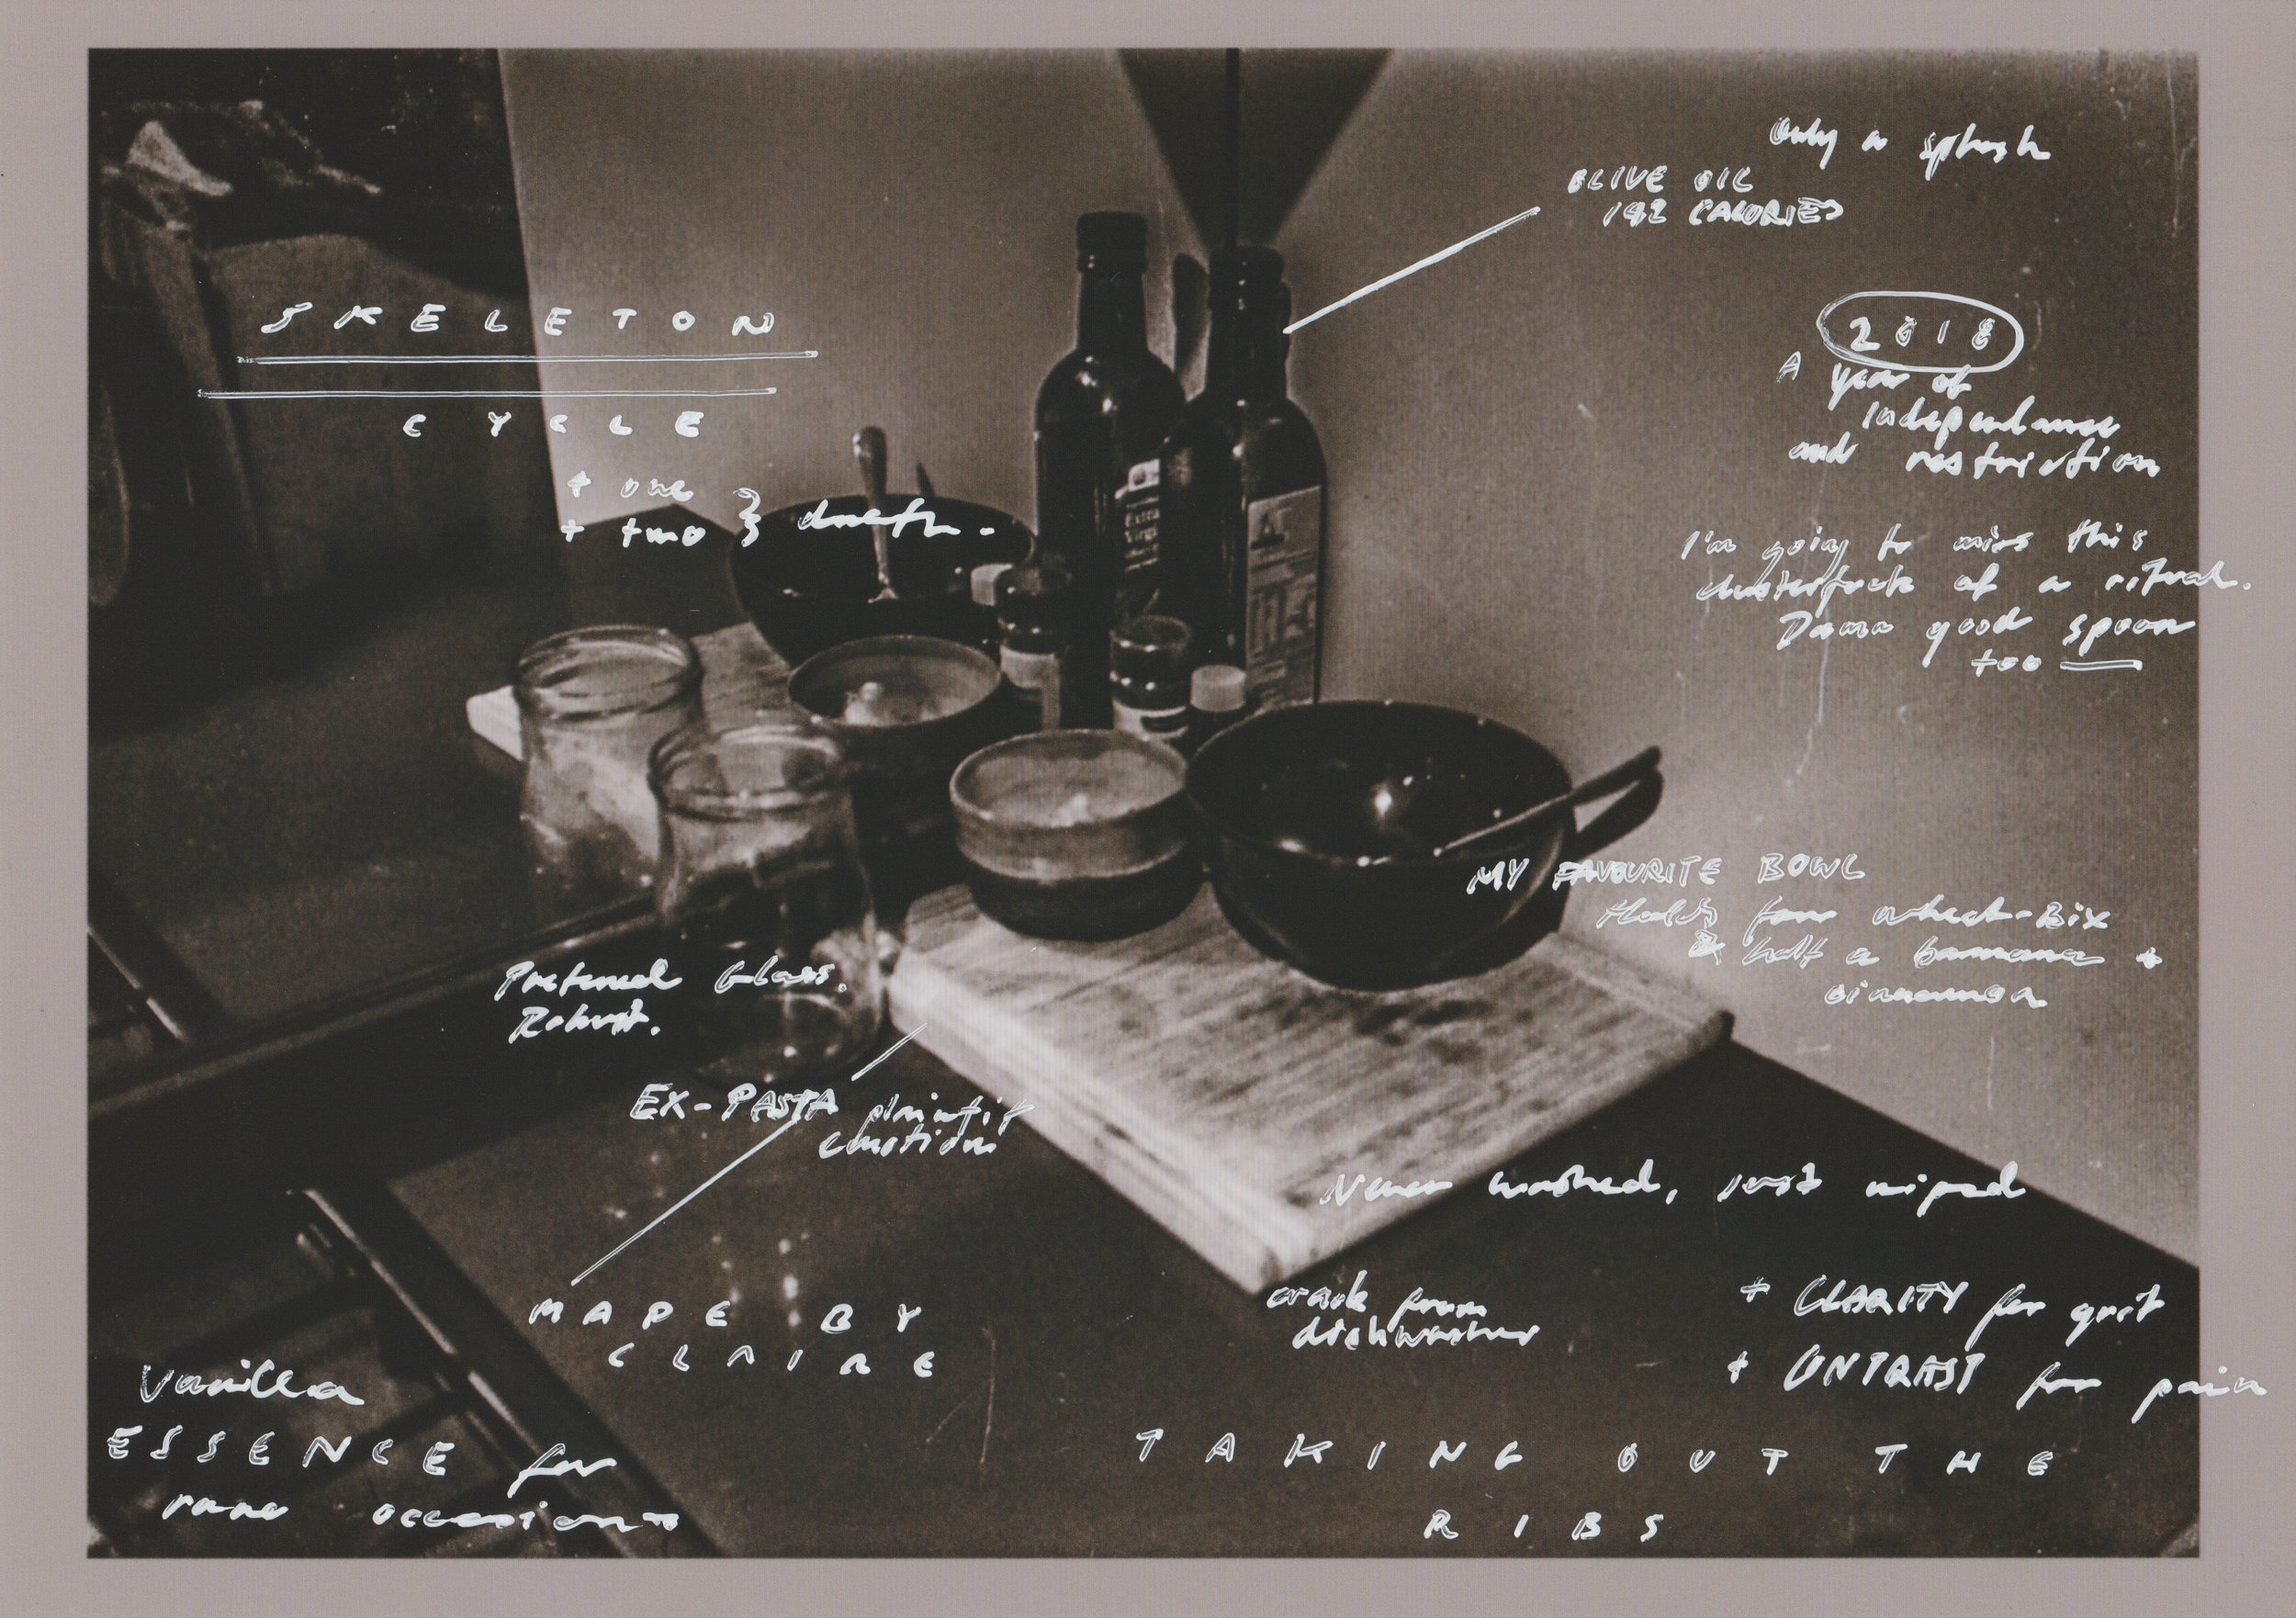 only a splash
OLIVE OIL
142 CALORIES
SKELETON
CYCLE
+ one
+ two } death.
2018
A year of
independance
and restriction
I'm going to miss this
clusterfuck of a ritual.
Damn good spoon
too
Extra
Virgin
MY FAVOURITE BOWL
Holds four wheet-Bix
& half a banana +
cinnamon
Preferred Glass.
Robust.
EX-PASTA
Never washed, just wiped
crack from
dishwasher
MADE BY
CLAIRE
+ CLARITY for grit
+ CONTRAST for pain
Vanilla
ESSENCE for
rare occasions
TAKING OUT THE
RIBS